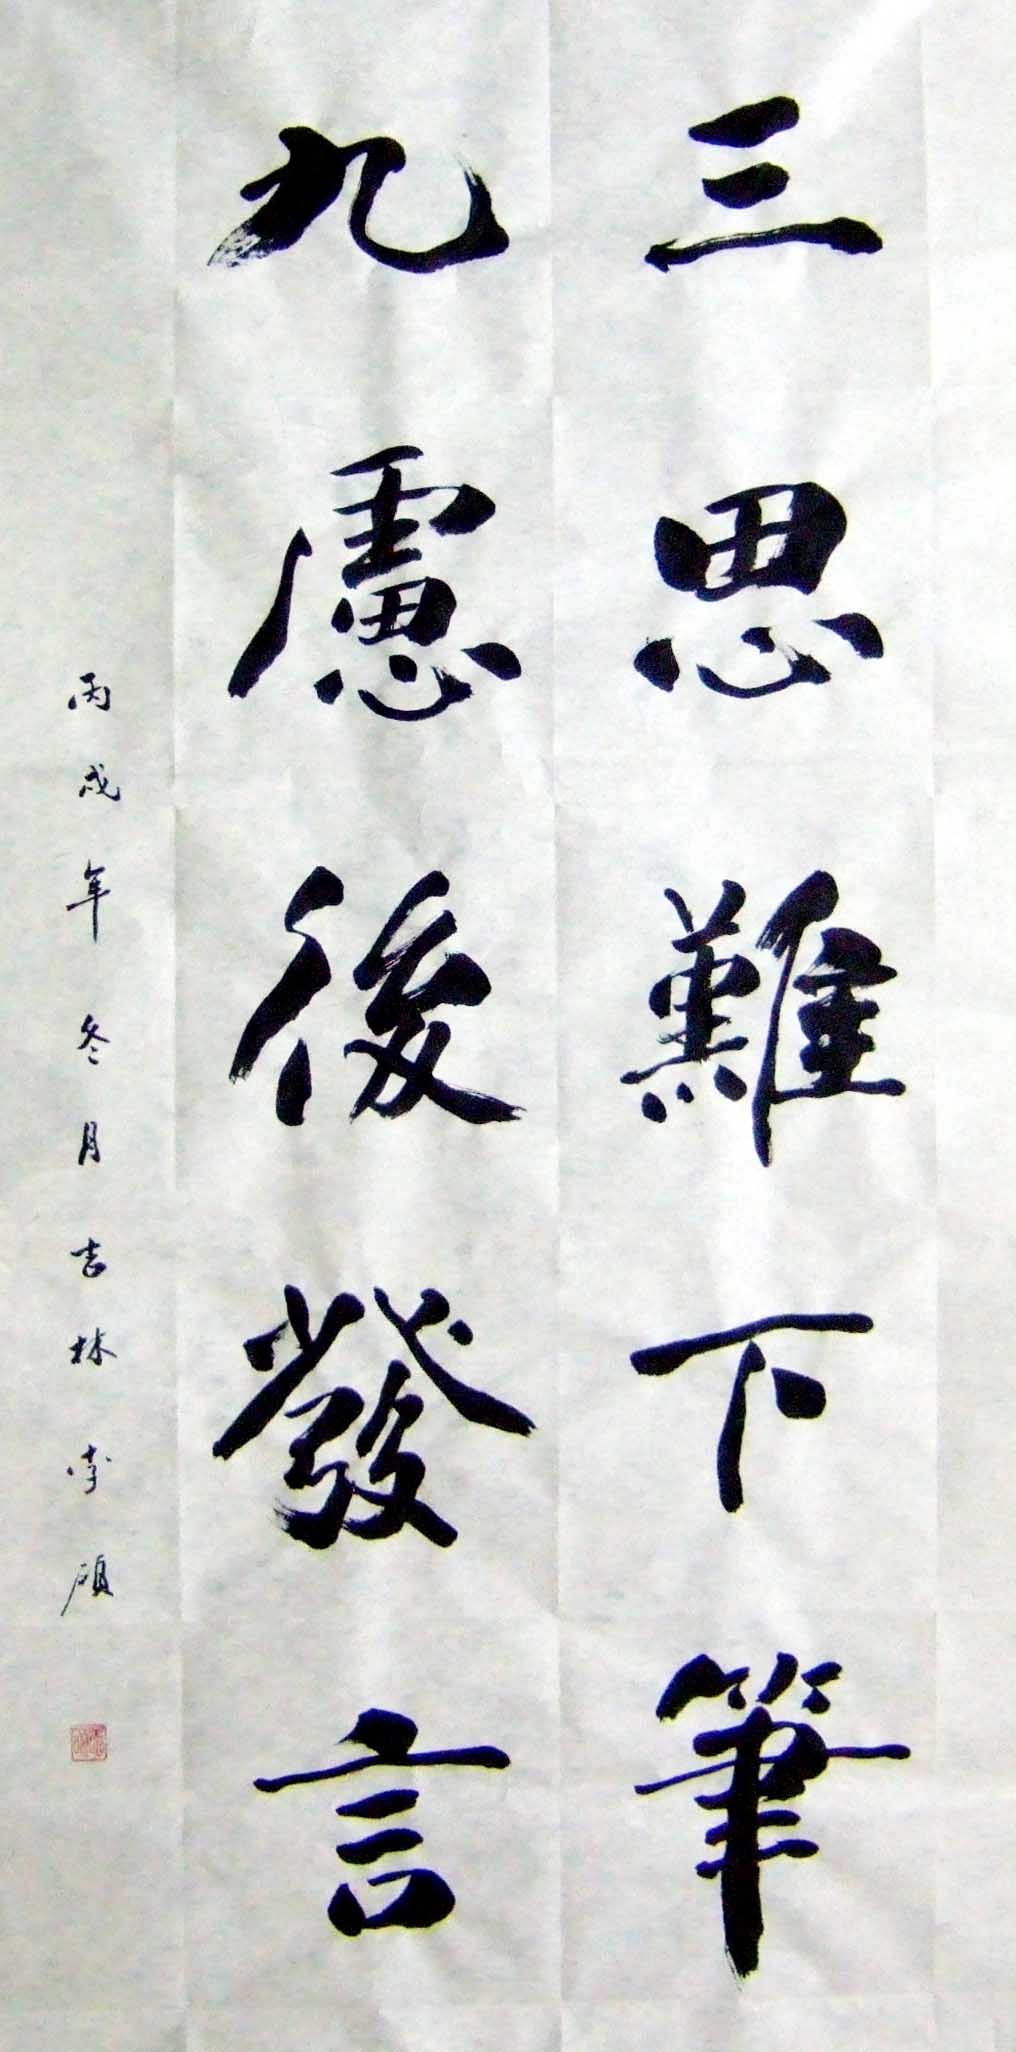 三思難下筆
九慮後發言
丙戌年冬月吉林李碩